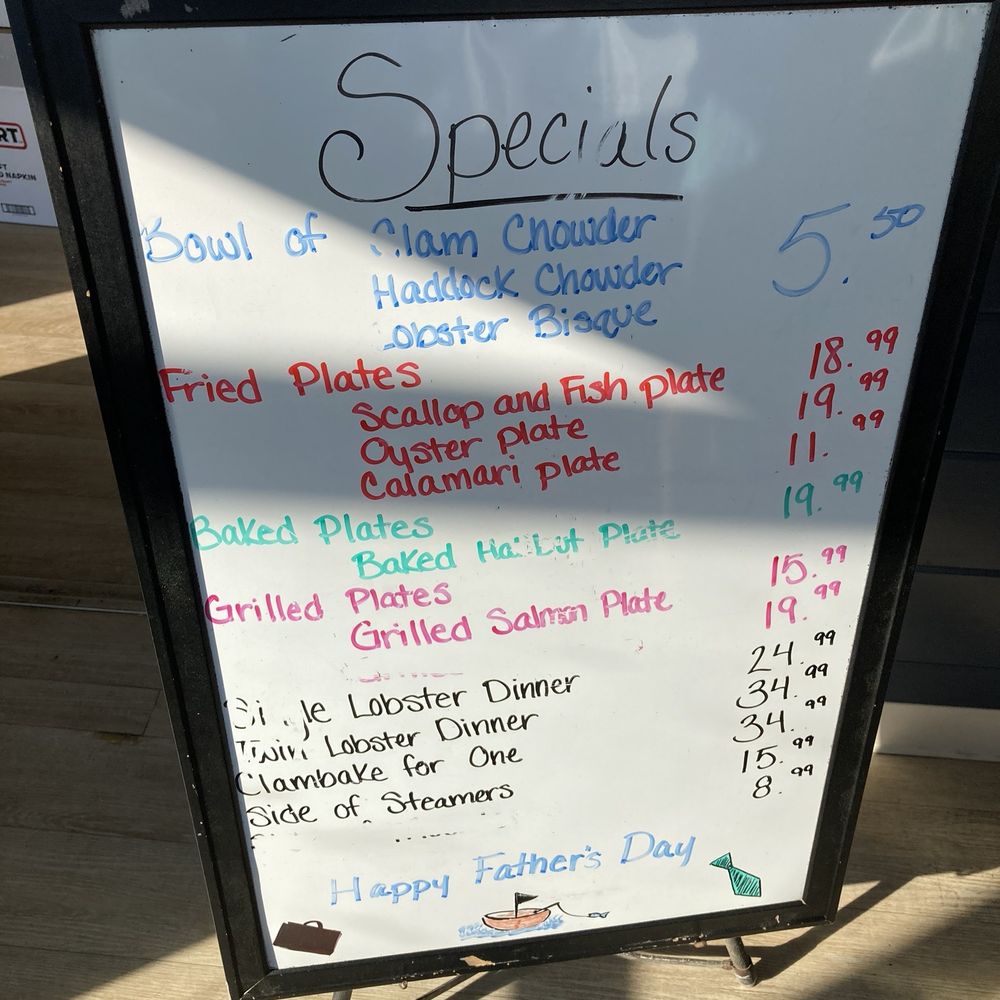 RT
NAPKIN
Specials
Bowl of Clam Chowder 5.50
Haddock Chowder
Lobster Bisque
Fried Plates
Scallop and Fish plate 18.99
Oyster plate 19.99
Calamari plate 11.99
Baked Plates
Baked Halibut Plate 19.99
Grilled Plates
Grilled Salmon Plate 15.99
19.99
Single Lobster Dinner 24.99
Twin Lobster Dinner 34.99
Clambake for One 34.99
Side of Steamers 15.99
8.99
Happy Father's Day